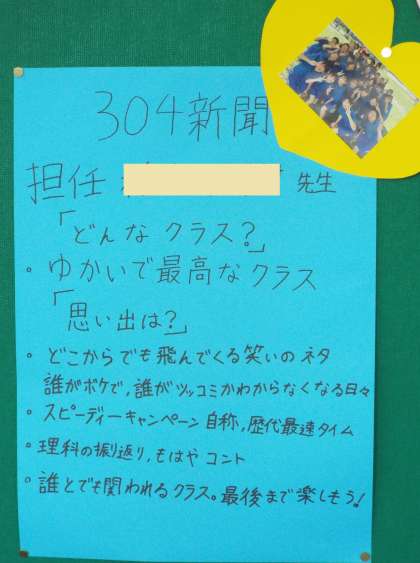 304新聞
担任 先生
「どんなクラス?」
・ゆかいで最高なクラス
「思い出は?」
・どこからでも飛んでくる笑いのネタ
誰がボケで,誰がツッコミかわからなくなる日々
・スピーディーキャンペーン自称,歴代最速タイム
・理科の振り返り,もはやコント
・誰とでも関われるクラス。最後まで楽しもう!